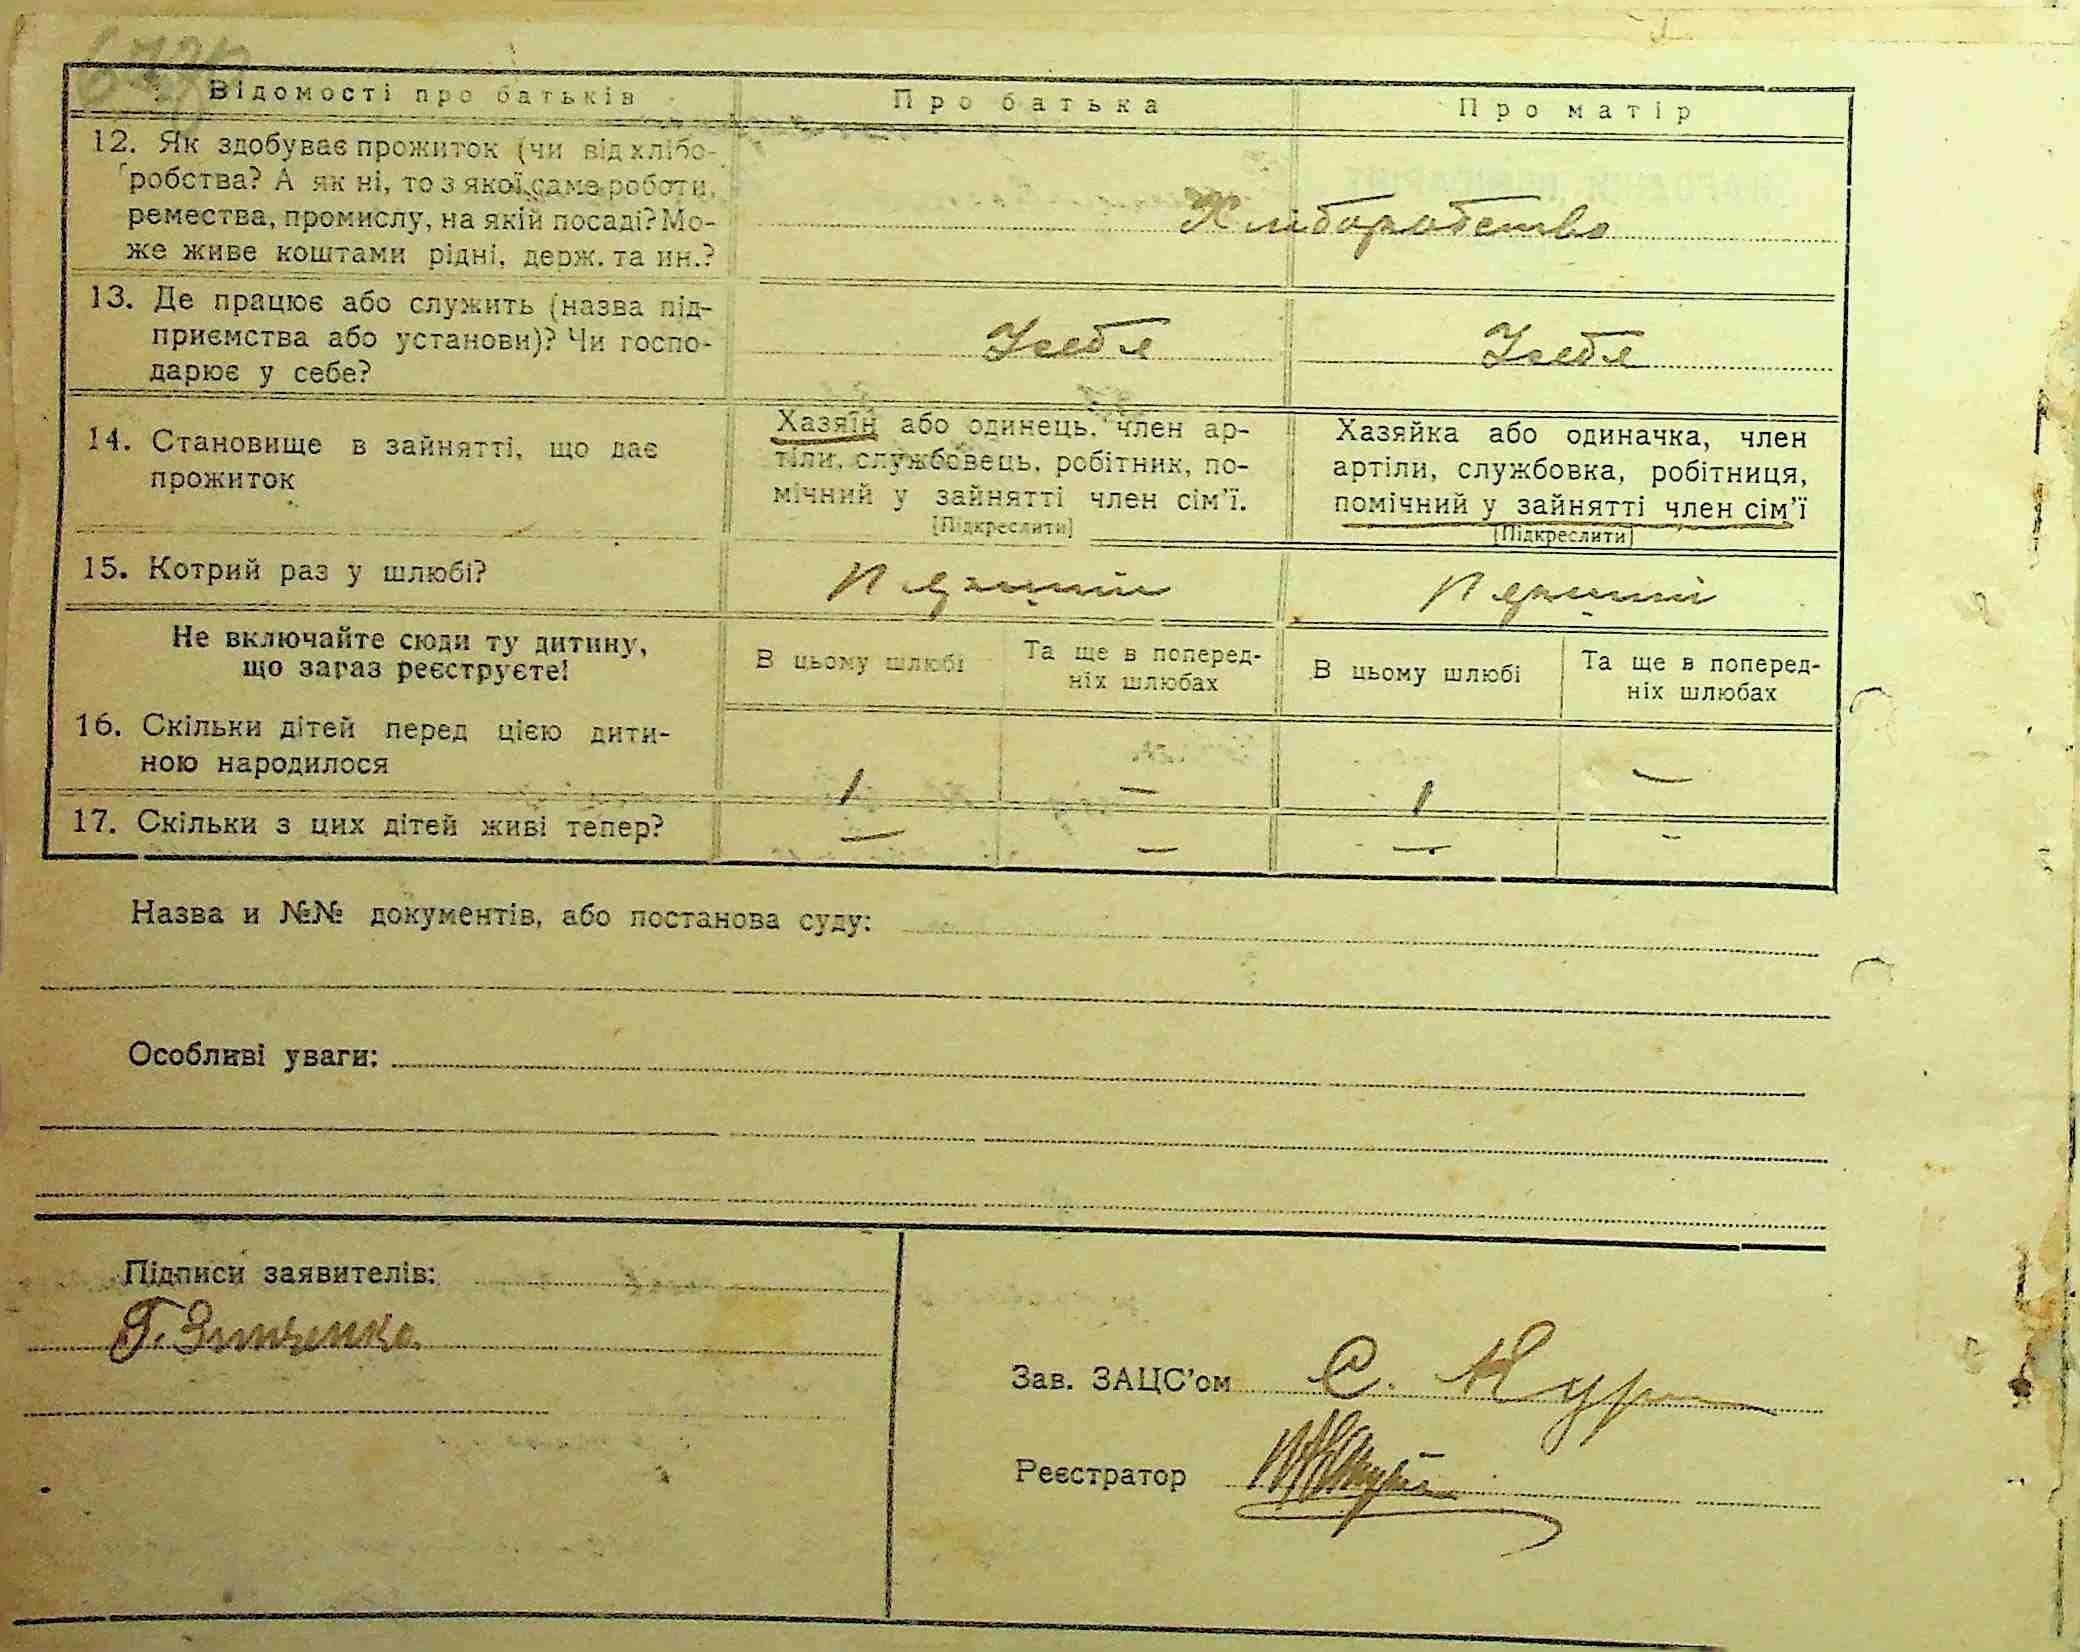 Відомості про батьків
Про батька
Про матір
12. Як здобуває прожиток (чи від хлібо-
робства? А як ні, то з якої саме роботи,
ремества, промислу, на якій посаді? Мо-
же живе коштами рідні, держ. та ин.?
Хліборобство
13. Де працює або служить (назва під-
приємства або установи)? Чи госпо-
дарює у себе?
Усебе
Усебе
14. Становище в зайнятті, що дає
прожиток
Хазяїн або одинець, член ар-
тіли, службовець, робітник, по-
мічний у зайнятті член сім'ї.
[Підкреслити]
Хазяйка або одиначка, член
артіли, службовка, робітниця,
помічний у зайнятті член сім'ї
[Підкреслити]
15. Котрий раз у шлюбі?
Перший
Перший
Не включайте сюди ту дитину,
що зараз реєструєте!
В цьому шлюбі
Та ще в поперед-
ніх шлюбах
В цьому шлюбі
Та ще в поперед-
ніх шлюбах
16. Скільки дітей перед цією дити-
ною народилося
1
—
1
—
17. Скільки з цих дітей живі тепер?
—
—
—
-
Назва и №№ документів, або постанова суду:
Особливі уваги:
Підписи заявителів:
Зав. ЗАЦС'ом С.
Реєстратор